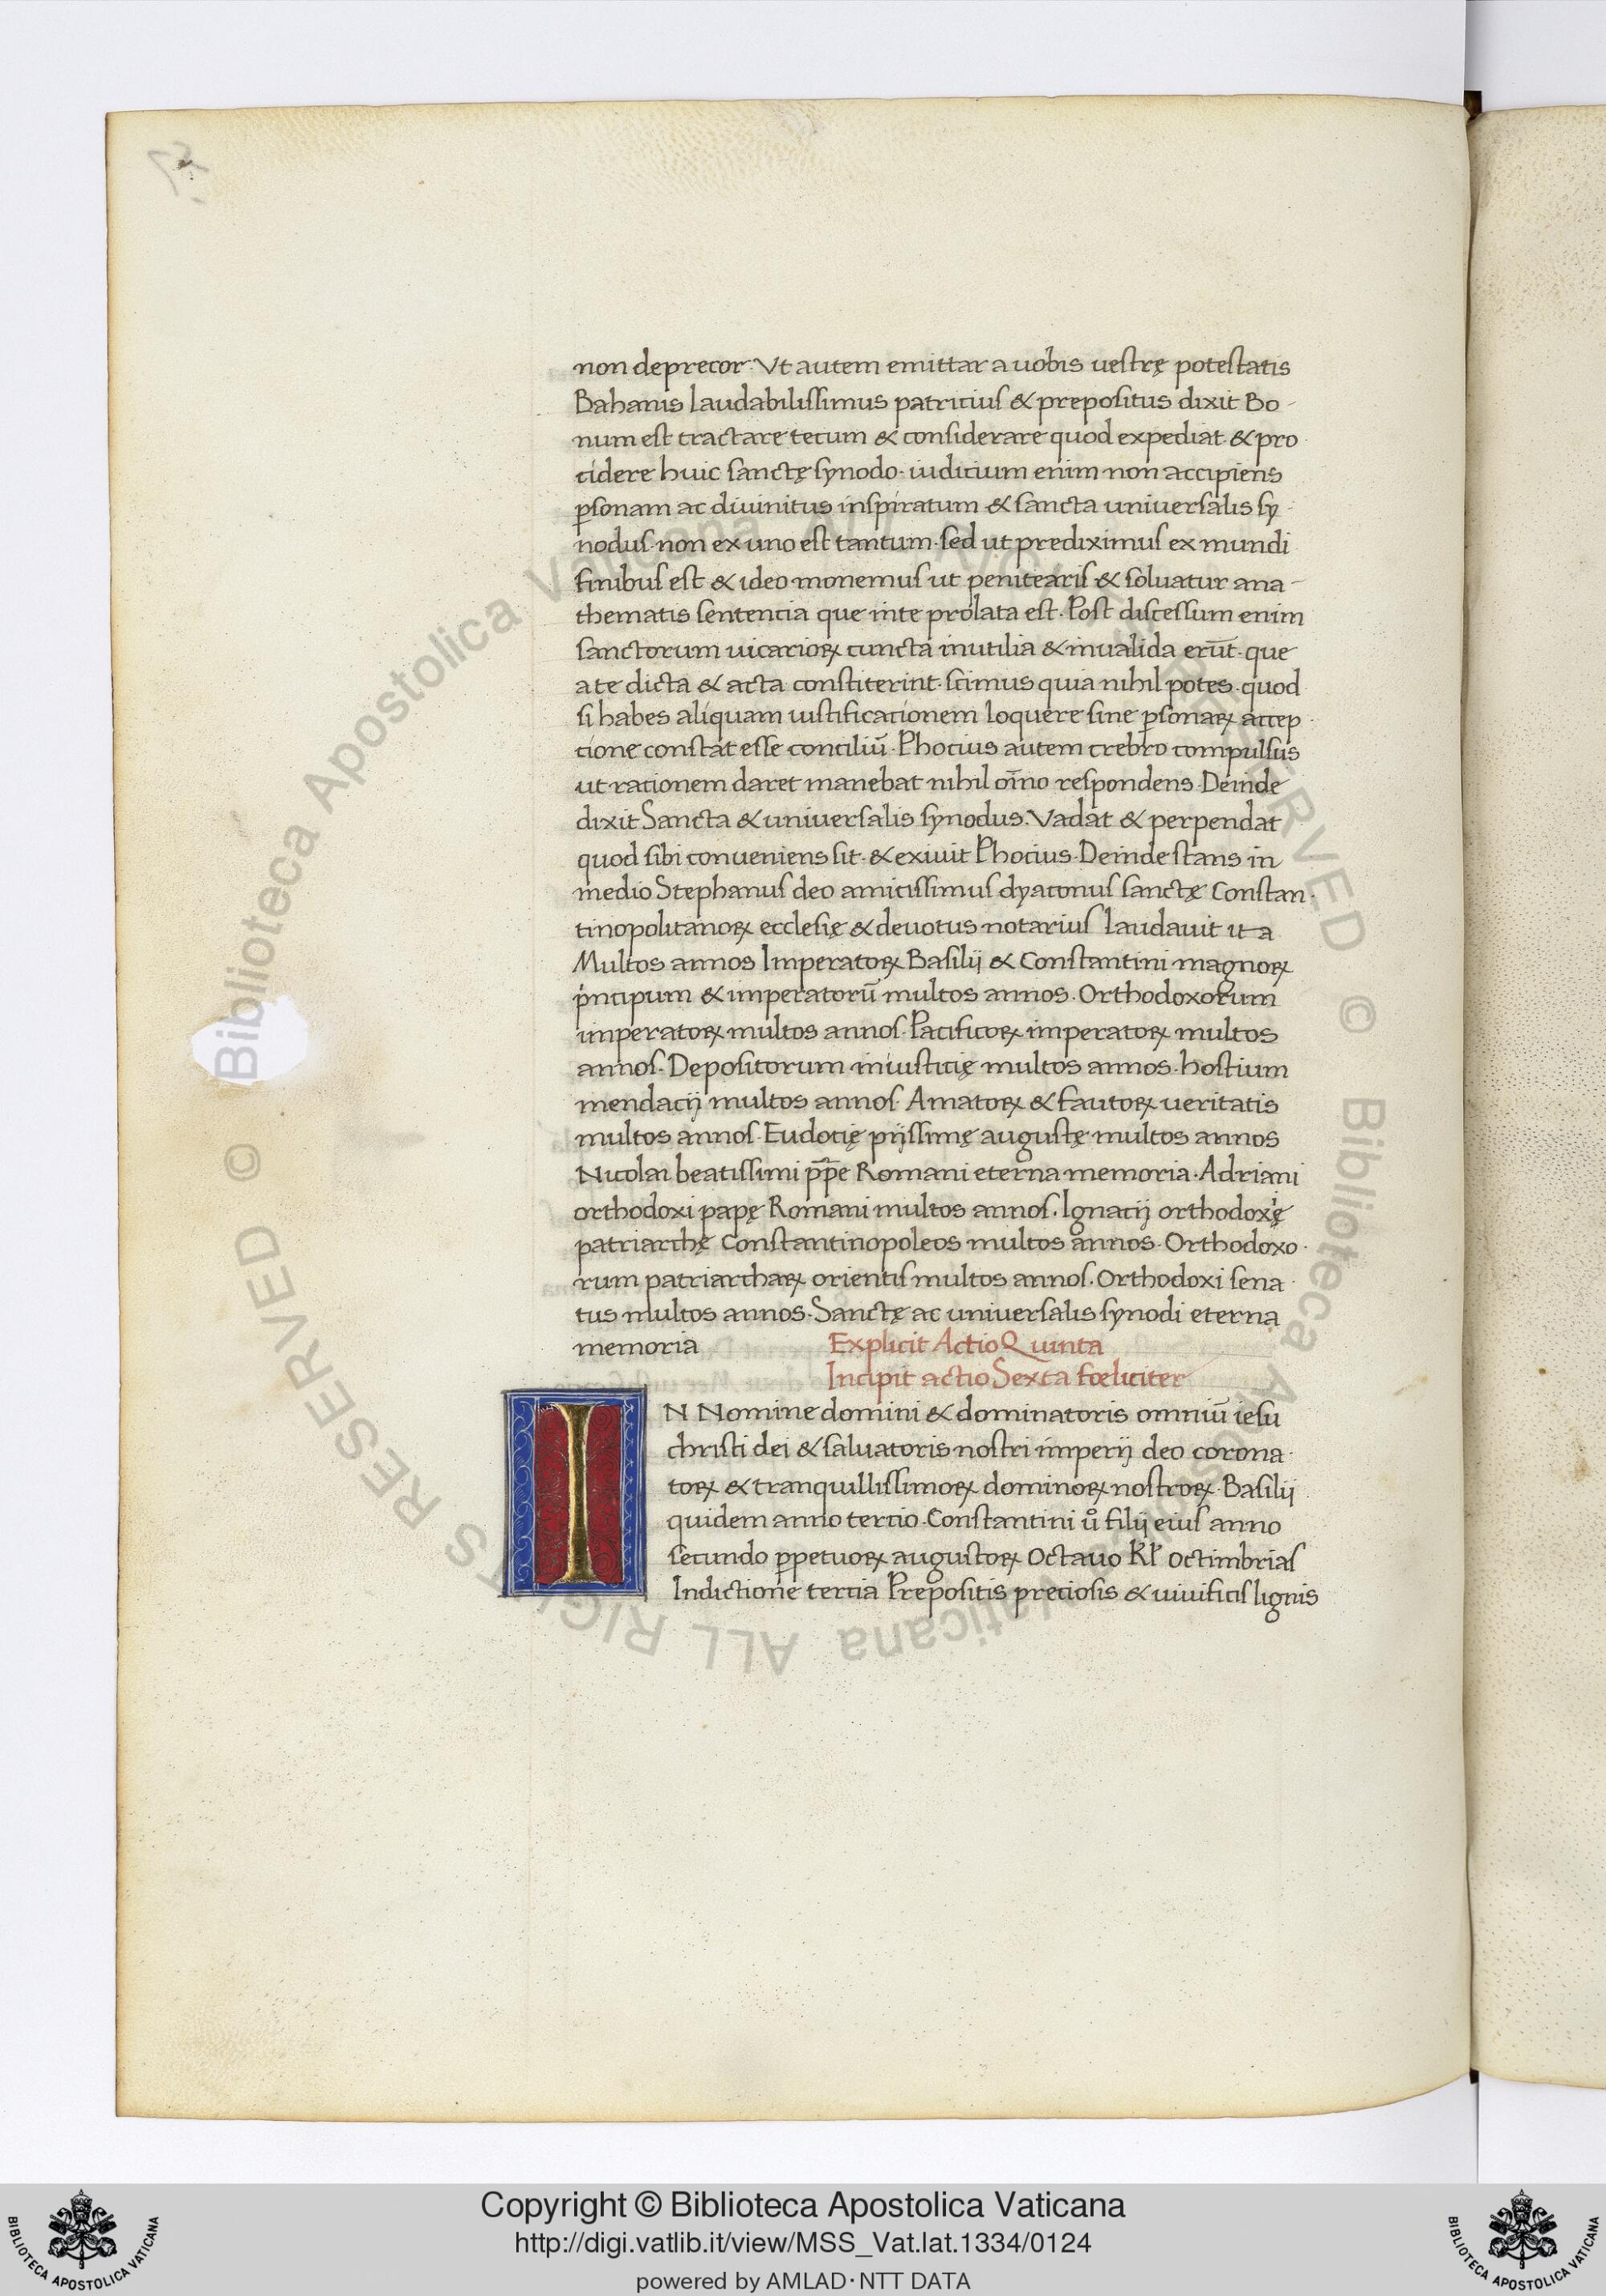 non deprecor. Vt autem emittar a uobis uestrę potestatis
Bahanis laudabilissimus patricius & prepositus dixit Bo-
num est tractare tecum & considerare quod expediat. & pro
cidere huic sanctę synodo. iudicium enim non accipiens
ꝑsonam ac diuinitus inspiratum & sancta uniuersalis sy-
nodus. non ex uno est tantum. sed ut prediximus ex mundi
finibus est & ideo monemus ut penitearis & soluatur ana-
thematis sentencia que inte prolata est. Post discessum enim
sanctorum uicarioꝝ cuncta inutilia & inualida erūt. que
a te dicta & acta constiterint. scimus quia nihil potes. quod
si habes aliquam iustificationem loquere sine ꝑsonaꝝ accep-
cione constat esse conciliū. Phocius autem crebro compulsus
ut rationem daret manebat nihil oīno respondens. Deinde
dixit Sancta & uniuersalis synodus. Vadat & perpendat
quod sibi conueniens sit. & exiuit Phocius. Deinde stans in
medio Stephanus deo amicissimus dyaconus sanctę Constan-
tinopolitanoꝝ ecclesię & deuotus notarius laudauit ita
Multos annos Imperatoꝝ Basilij & Constantini magnoꝝ
pͥncipum & imperatorū multos annos. Orthodoxorum
imperatoꝝ multos annos. Pacificoꝝ imperatoꝝ multos
annos. Depositorum iniusticię multos annos. hostium
mendacij multos annos. Amatoꝝ & fautoꝝ ueritatis
multos annos. Eudocię pijssimę augustę multos annos
Nicolai beatissimi p̄p̄e Romani eterna memoria. Adriani
orthodoxi papę Romani multos annos. Ignacij orthodoxę
patriarchę Constantinopoleos multos annos. Orthodoxo-
rum patriarchaꝝ orientis multos annos. Orthodoxi sena-
tus multos annos. Sanctę ac uniuersalis synodi eterna
memoria Explicit Actio Quinta
Incipit actio Sexta fœliciter
IN Nomine domini & dominatoris omniū iesu
christi dei & saluatoris nostri imperij deo corona-
toꝝ & tranquillissimoꝝ dominoꝝ nostroꝝ. Basilij
quidem anno tercio. Constantini u̇ filij eius anno
secundo ꝑpetuoꝝ augustoꝝ Octauo Kl̄ octimbrias
Indictione tercia Prepositis preciosis & uiuificis lignis
Copyright © Biblioteca Apostolica Vaticana
http://digi.vatlib.it/view/MSS_Vat.lat.1334/0124
powered by AMLAD·NTT DATA
BIBLIOTECA APOSTOLICA VATICANA
BIBLIOTECA APOSTOLICA VATICANA
© Biblioteca Apostolica Vaticana ALL RIGHTS RESERVED © Biblioteca Apostolica Vaticana ALL RIGHTS RESERVED